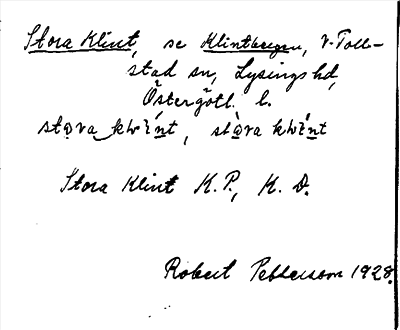 Stora Klint, se Klintbergen, V. Toll-
stad sn, Lysings hd,
Östergötl. l.
Stora Klint K. P., K. D.
Robert Pettersson 1928.